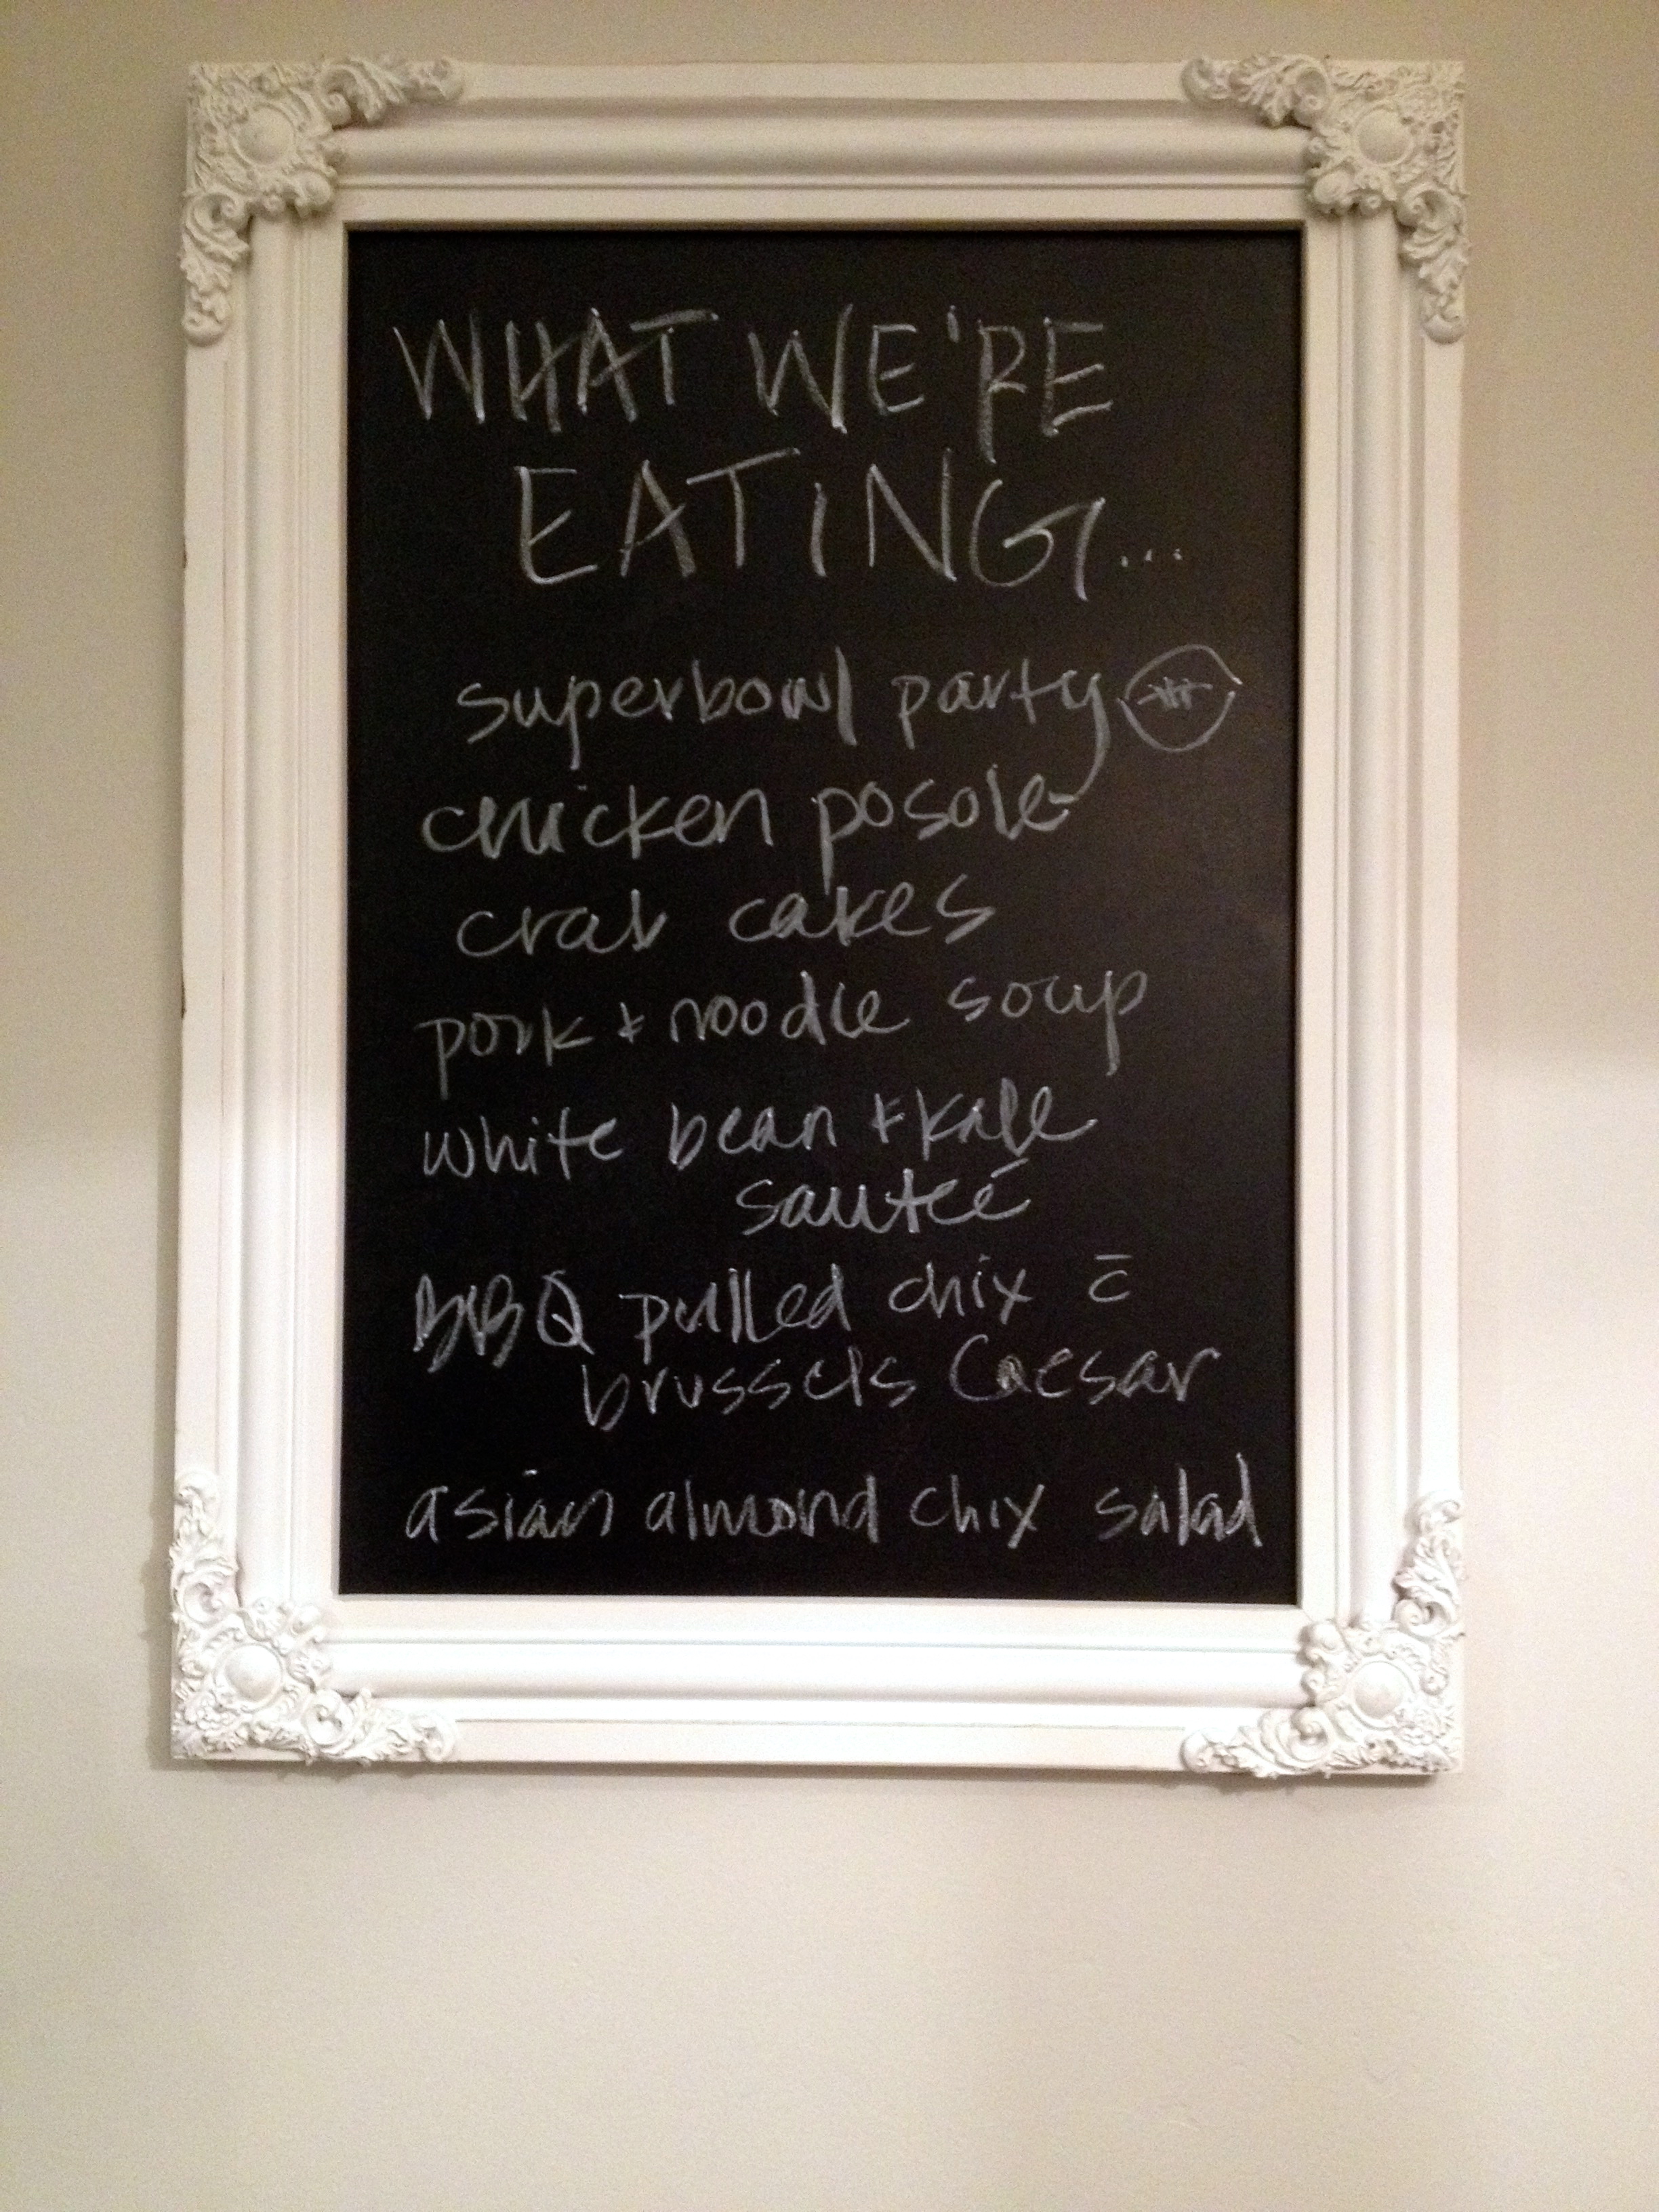 WHAT WE'RE
EATING...
superbowl party
chicken posole
crab cakes
pork + noodle soup
white bean + kale
sauteé
BBQ pulled chix c̄
brussels Caesar
asian almond chix salad